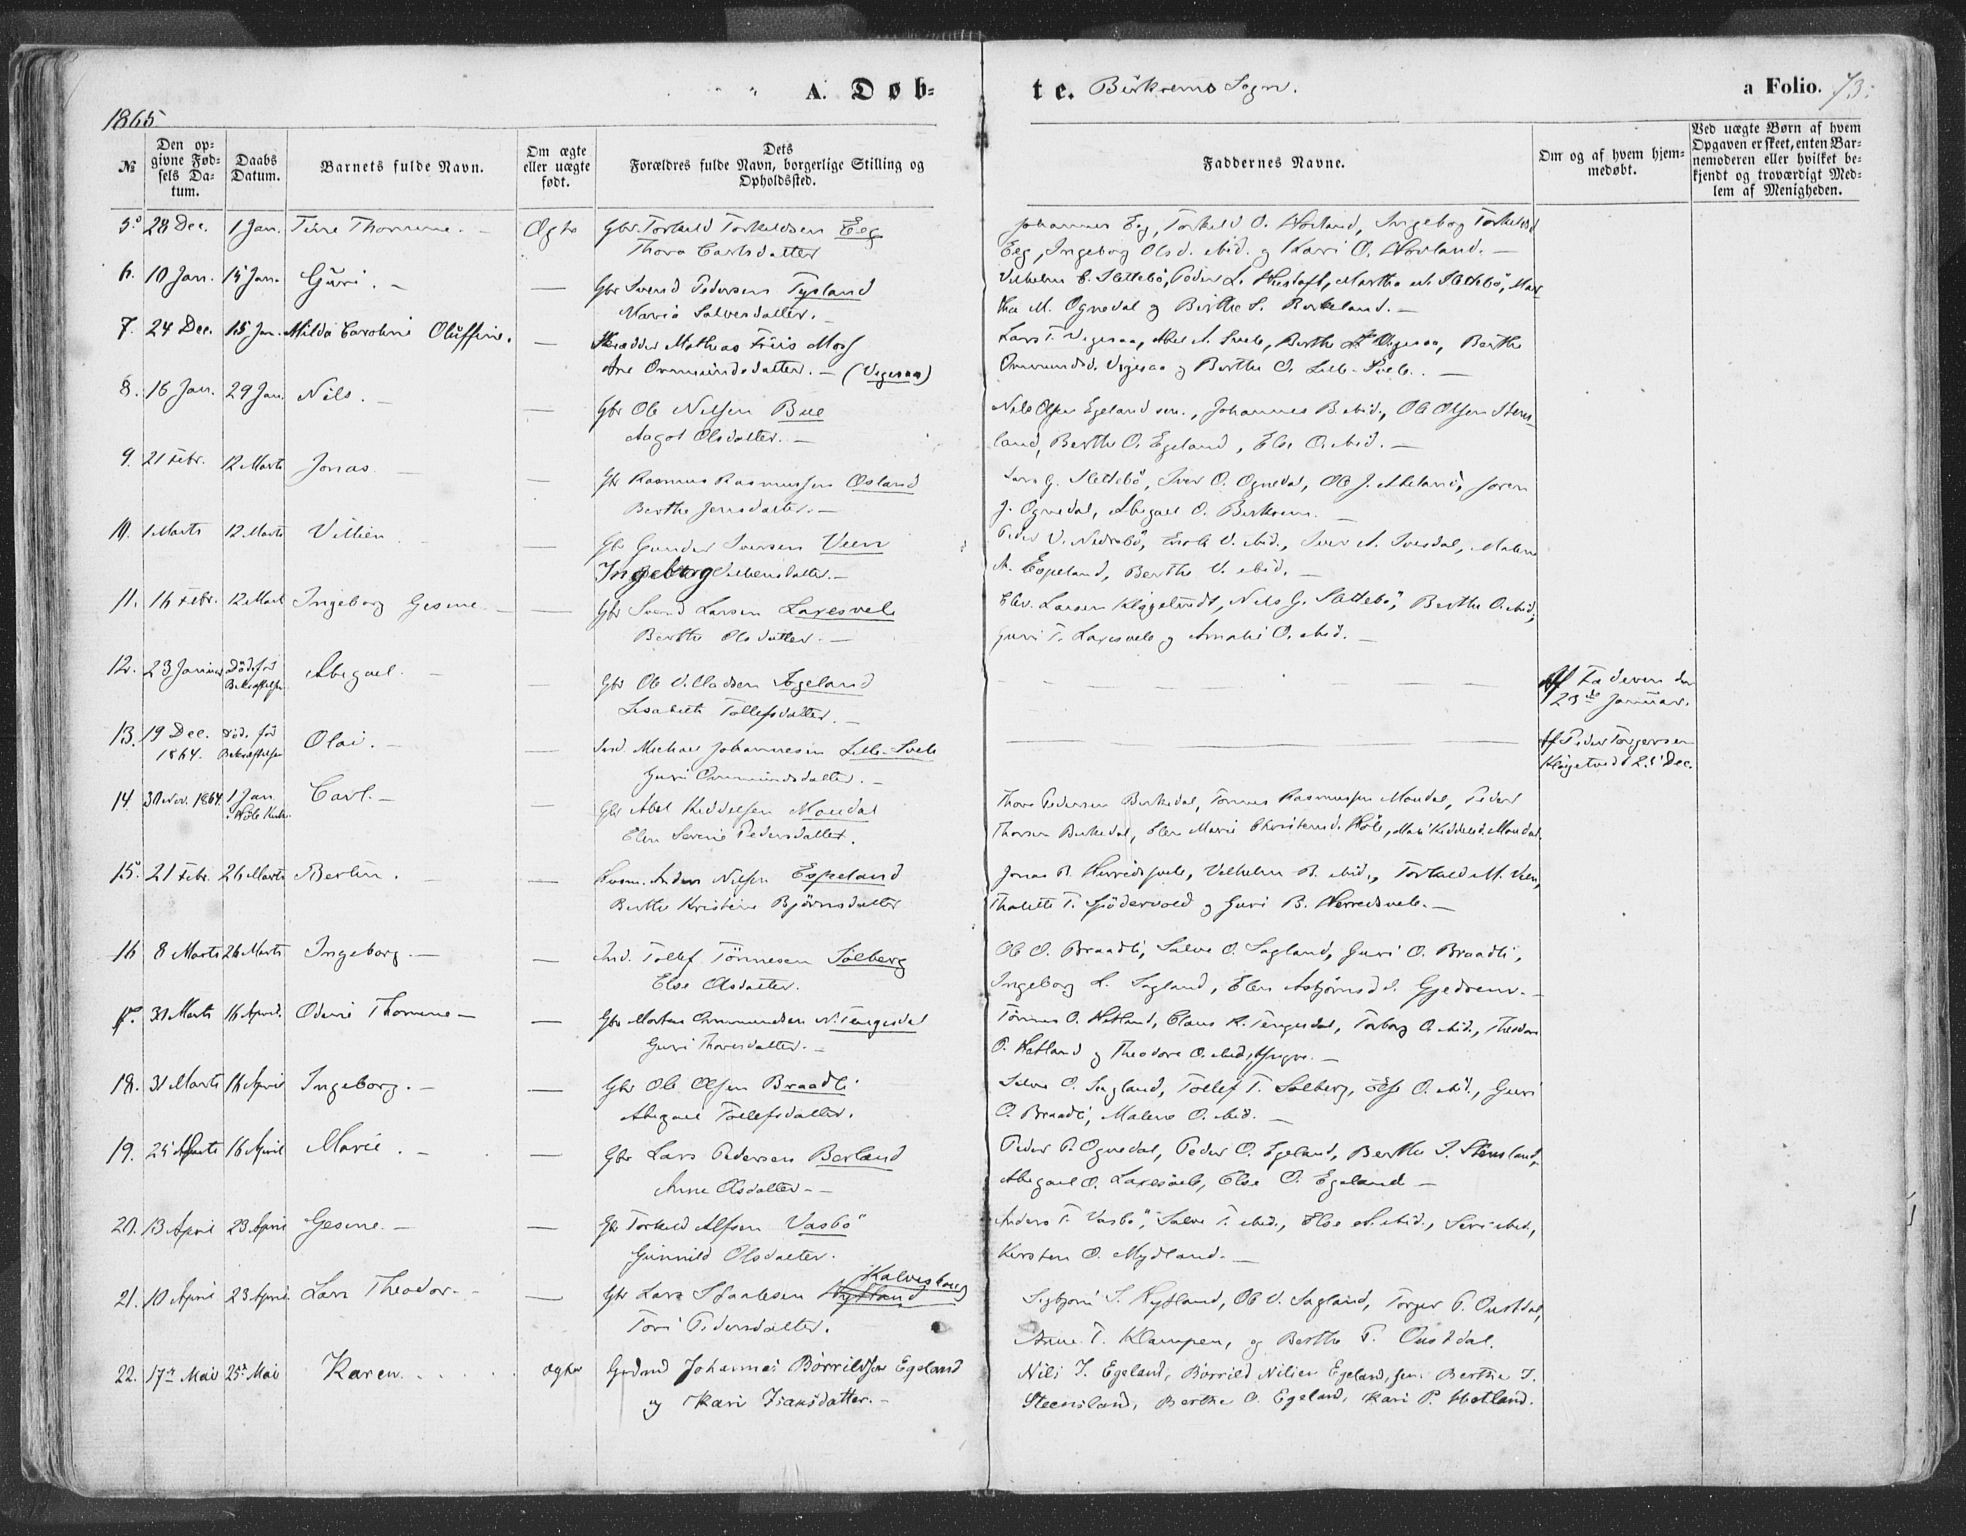 1865
A. Døb-
te. Birkrems Sogn.
a Folio. 73.
№
Den op-
givne Fød-
sels Da-
tum.
Daabs
Datum.
Barnets fulde Navn.
Om ægte
eller uægte
født.
Dets
Forældres fulde Navn, borgerlige Stilling og
Opholdssted.
Faddernes Navne.
Om og af hvem hjem-
medøbt.
Ved uægte Børn af hvem
Opgaven er skeet, enten Bar-
nemoderen eller hvilket be-
kjendt og troværdigt Med-
lem af Menigheden.
5. 28 Dec. 1 Jan. Tine Thomine. Ægte Gbr. Torkild Torkildsen Eeg
Thora Carlsdatter
Johannes Eeg, Torkild O. Hovland, Ingeborg Torkildsd
Eeg, Ingeborg Olsd. ibid. og Kari O. Hovland.
6. 10 Jan. 15 Jan. Guri. Gbr Svend Pedersen Tysland
Maria Salvesdatter.
Vilhelm E. Slettebö, Peder L. Martha Slettebö, Mar
tha M. Ognedal og Birthe S. Birkeland.
7. 24 Dec. 15 Jan. Milda Caroline Oluffine. Skrædder Mathias Friis Mos
Ane Ommundsdatter. (Vigesaa)
Lars T. Vigesaa, Abel A. Svele, Berthe Vigesaa, Berthe
Ommundsd. Vigesaa og Berthe O. Lille-Svele.
8. 16 Jan. 29 Jan. Nils. Gbr Ole Nilsen Bue
Aagot Olsdatter.
Nils Olsen Egeland sen., Johannes B. ibid., Ole Olsen Stens
land, Berthe O. Egeland, Else O. ibid.
9. 21 Febr. 12 Marts Jonas. Gbr Rasmus Rasmussen Osland
Berthe Jensdatter.
Lars G. Slettebö, Iver O. Ognedal, Ole J. Soren
J. Ognedal, Abigael O. Birkrem.
10. 1 Marts 12 Marts Villien Gbr Gunder Iversen Veen
Ingeborg Villiensdatter.
Peder V. Nedrebö, V. ibid., Iver A. Ivesdal, Malene
A. Espeland, Berthe V. ibid.
11. 16 Febr. 12 Marts Ingeborg Gesine Gbr Svend Larsen Laxesvele
Berthe Olsdatter.
Elev. Larsen Kløgetvedt, Nils G. Slettebö, Berthe O. ibid,
Guri T. Laxesvele og Amalie O. ibid.
12. 23 Januar Död för
Bekræftelse Abigael Gbr Ole Villadsen Ageland
Lisabeth Tollefsdatter.
Af Faderen den
23de Januar.
13. 19 Dec.
1864. Död. för
Bekræftelse Olai. Ind. Michael Johannesen Lille-Svele
Guri Ommundsdatter.
Af Peder Torgersen
Kløgetvedt 23' Dec.
14 30 Nov. 1864. 1 Jan.
i Høle Kirke. Carl. Gbr Abel Keddelsen Maudal
Elen Serine Pedersdatter.
Thore Pedersen Birkedal, Tønnes Rasmussen Maudal, Peder
Thorsen Birkedal, Elen Marie Christensd. Høle, Mari Keddelsd. Maudal.
15. 21 Febr. 26 Marts Bertin. Husm. Anders Nilsen Espeland
Berthe Kristine Bjørnsdatter
Jonas B. Herredsvele, Vilhelm B. ibid., Torkild M. Veen,
Thalette T. Gjødervold og Guri B. Herredsvele.
16 8 Marts 26 Marts Ingeborg. Ind. Tollef Tönnesen Solberg
Else Olsdatter.
Ole O. Braadli, Salve O. Sagland, Guri O. Braadli,
Ingeborg L. Sagland, Elen Asbjørnsd. Gjedrem.
17. 30 Marts 16 April. Odine Thomine Gbr Morten Ommundsen N. Tengesdal
Guri Thoresdatter.
Tönnes O. Hetland, Claus R. Tengesdal, Torborg O. ibid., Theodor
O. Hetland og Theodore O. ibid, yngre.
18. 31 Marts 16 April Ingeborg. Gbr Ole Olsen Braadli
Abigael Tollefsdatter.
Salve O. Sagland, Tollef T. Solberg, Else O. ibid., Guri
O. Braadli, Malene O. ibid.
19. 25 Marts 16 April Marie. Gbr Lars Pedersen Berland
Anne Olsdatter
Peder P. Ognedal, Peder O. Egeland, Berthe I. Stensland,
Abigael O. Laxesvele, Else O. Egeland
20. 13 April 23 April Gesine. Gbr Torkild Alfsen Vasbö
Gunnild Olsdatter.
Anders T. Vasbö, Salve T. ibid., Else A. ibid., Siri ibid.,
Kirsten O. Mydland.
21. 10 April 23 April. Lars Theodor. Gbr Lars Staalesen Nyttland Kalvesborg
Tori Pedersdatter.
Sigbjørn S. Nyttland, Ole V. Sagland, Torger P. Oustdal,
Anne T. Klampen, og Berthe P. Oustdal.
22. 17de Mai 25de Mai Karen. ægte Grdmd Johannes Börrildsen Egeland
og Kari Isaksdatter.
Nils J. Egeland, Börrild Nilsen Egeland, sen: Berthe I.
Steensland, Berthe O. Egeland, Kari P. Hetland.